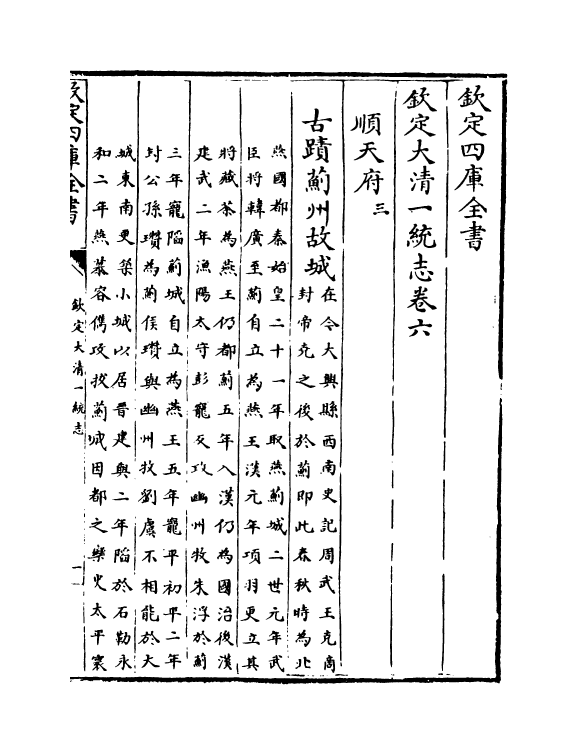 欽定四庫全書
欽定大清一統志卷六
順天府三
古蹟薊州故城
在今大興縣西南史記周武王克商
封帝堯之後於薊即此春秋時為北
燕國都秦始皇二十一年取燕薊城二世元年武
臣將韓廣至薊自立為燕王漢元年項羽更立其
將藏荼為燕王仍都薊五年入漢仍為國治後漢
建武二年漁陽太守彭寵反攻幽州牧朱浮於薊
三年寵陷薊城自立為燕王五年寵平初平二年
封公孫瓚為薊侯瓚與幽州牧劉虞不相能於大
城東南更築小城以居晉建興二年陷於石勒永
和二年燕慕容儁攻拔薊城因都之樂史太平寰
欽定四庫全書
欽定大清一統志
一